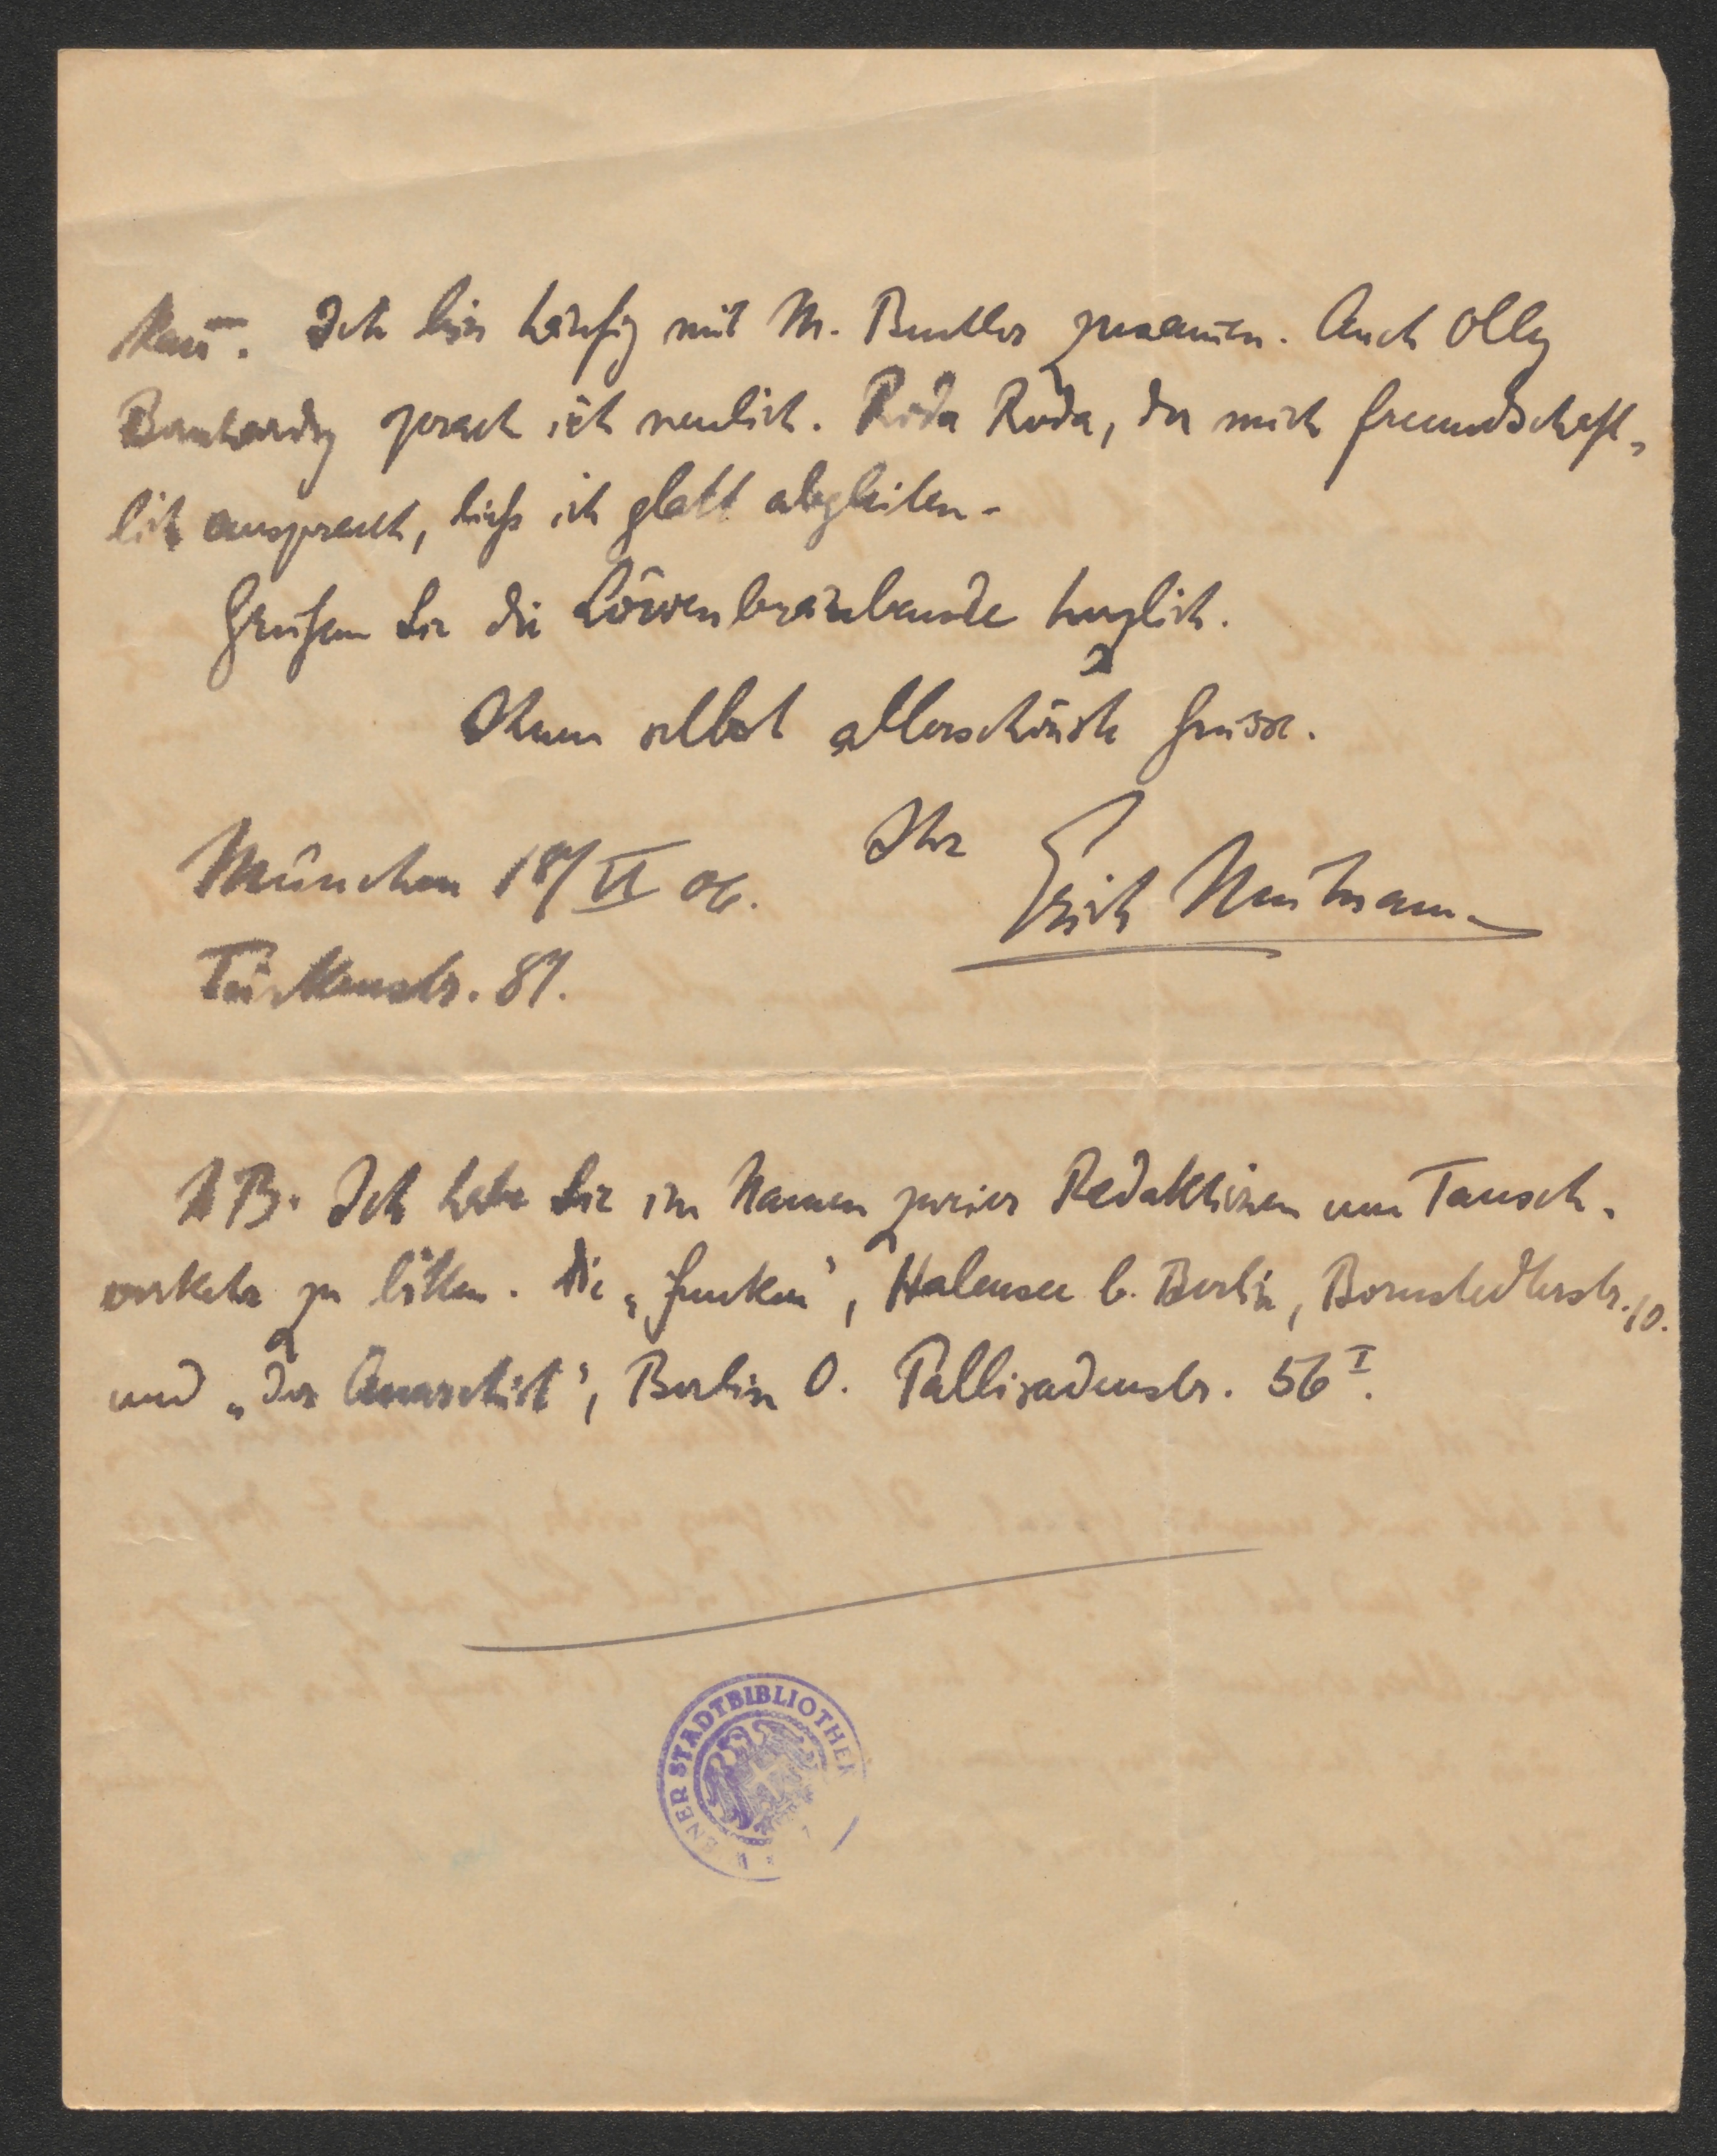 kan̅. Ich bin häufig mit M. Butler zusam̅en. Auch Olly
Bernhardy sprach ich neulich. Roda Roda, der mich freundschaft-
lich ansprach, ließ ich glatt abgleiten.
Grüßen Sie die Löwenbräubande herzlich.
Ihnen selbst allerschönste Grüsse.
Ihr
Erich Mühsam
München 18/VI 06.
Türkenstr. 81.
NB. Ich habe Sie im Namen zweier Redaktionen um Tausch-
verkehr zu bitten. Die „Funken“, Halensee b. Berlin, Bornstedterstr. 10.
und „Der Anarchist“, Berlin O. Pallisadenstr. 56 I.
WIENER STADTBIBLIOTHEK